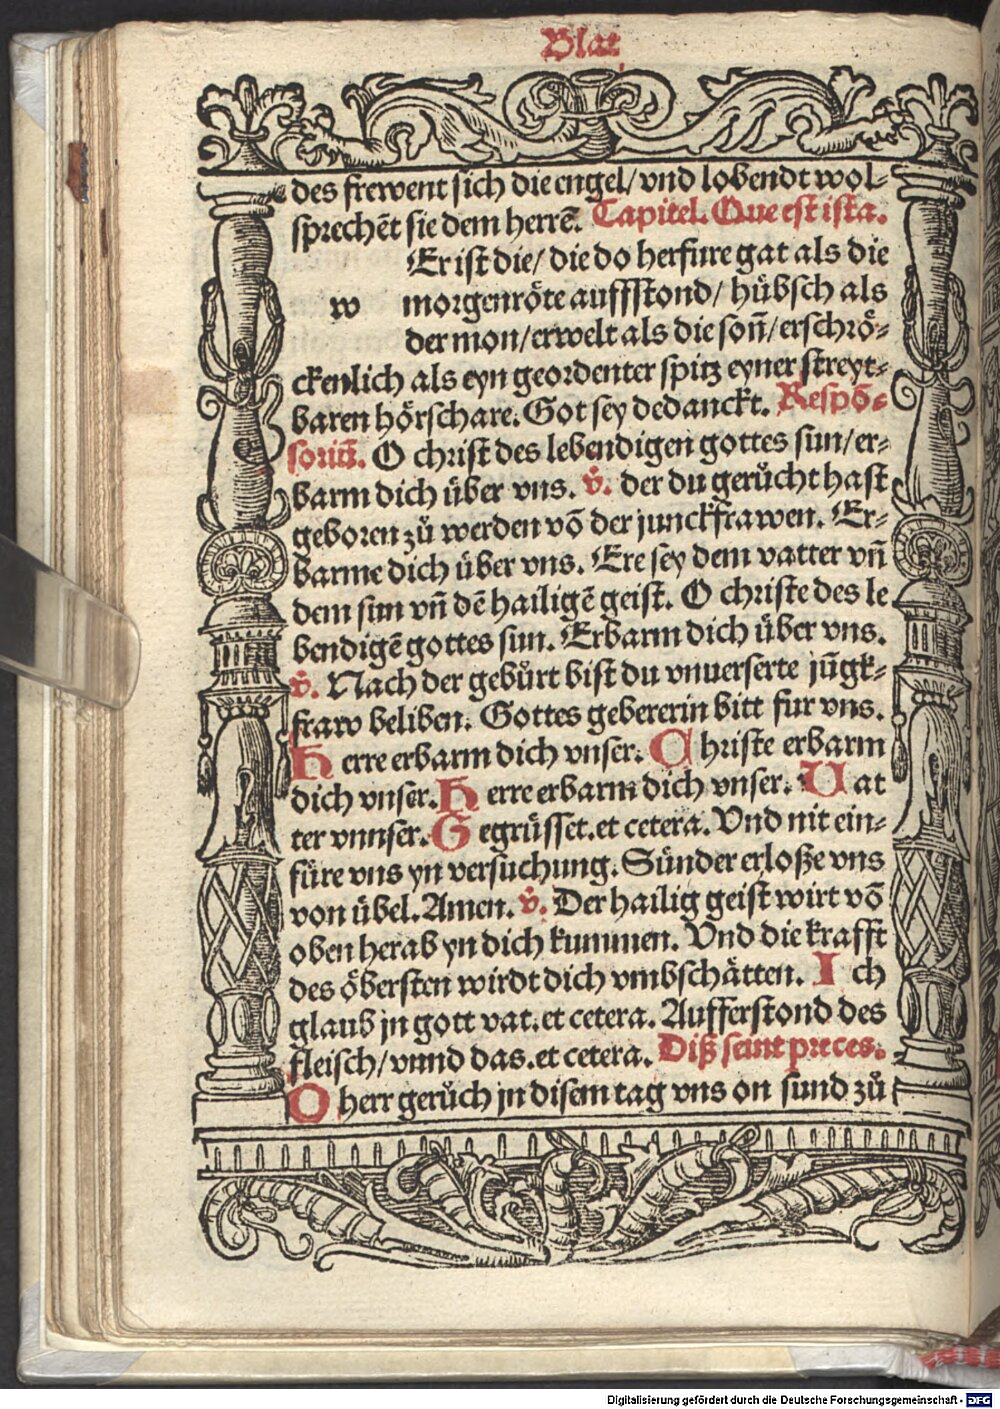 Blat
des frewent sich die engel/ vnd lobendt wol-
sprechēt sie dem herrē. Capitel. Que est ista.
Er ist die/ die do herfure gat als die
w morgenröte auffstond/ hübsch als
der mon/ erwelt als die soñ/ erschrö-
ckenlich als eyn geordenter spitz eyner streyt-
baren hörschare. Got sey dedanckt. Respō-
soriū. O christ des lebendigen gottes sun/ er-
barm dich über vns. v̊. der du gerůcht hast
geboren zů werden vō der junckfrawen. Er-
barme dich über vns. Ere sey dem vatter vñ
dem sun vñ dē hailigē geist. O christe des le
bendigē gottes sun. Erbarm dich über vns.
v̊. Nach der gebůrt bist du vnuerserte jūgk-
fraw beliben. Gottes gebererin bitt fur vns.
Herre erbarm dich vnser. Christe erbarm
dich vnser. Herre erbarm dich vnser. Uat
ter vnnser. Gegrüsset. et cetera. Vnd nit ein-
füre vns yn versuchung. Sünder erloße vns
von übel. Amen. v̊. Der hailig geist wirt vō
oben herab yn dich kummen. Vnd die krafft
des öbersten wirdt dich vmbschätten. Ich
glaub jn gott vat. et cetera. Aufferstond des
fleisch/ vnnd das. et cetera. Diß seint preces.
O herr gerůch jn disem tag vns on sund zů
Digitalisierung gefördert durch die Deutsche Forschungsgemeinschaft - DFG